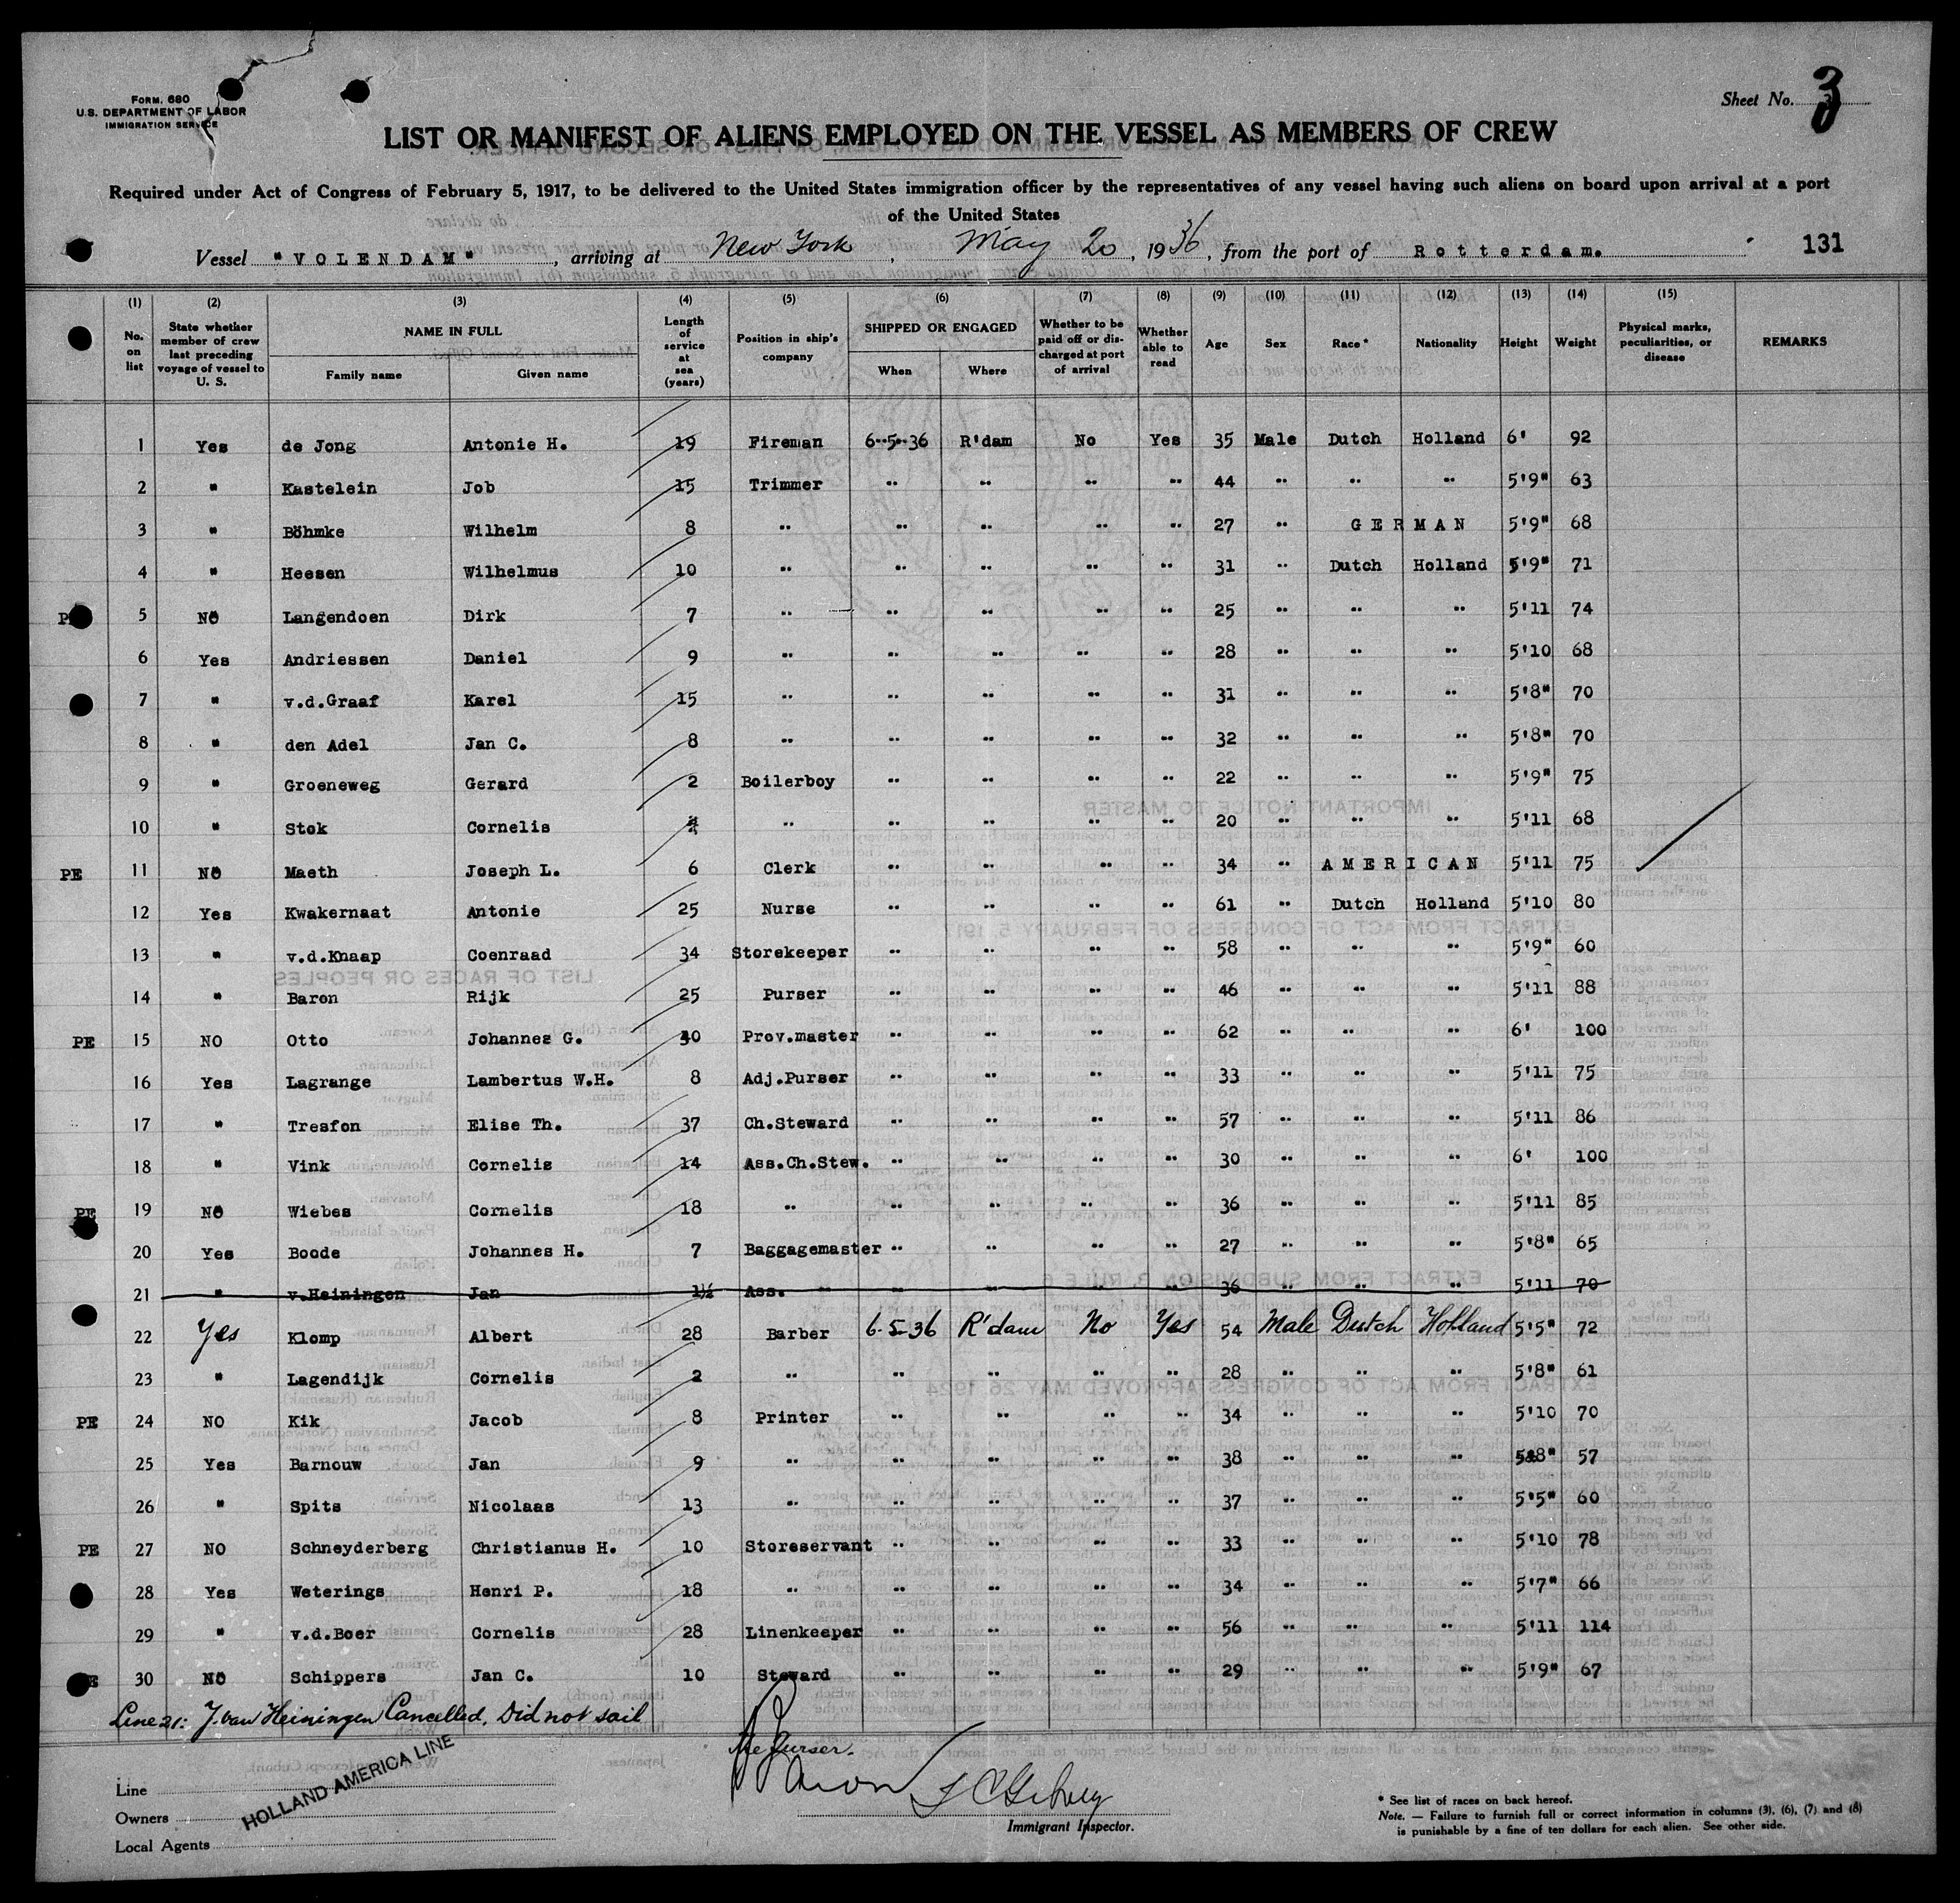 Form. 680
U.S. DEPARTMENT OF LABOR
IMMIGRATION SERVICE
Sheet No. 3
LIST OR MANIFEST OF ALIENS EMPLOYED ON THE VESSEL AS MEMBERS OF CREW
Required under Act of Congress of February 5, 1917, to be delivered to the United States immigration officer by the representatives of any vessel having such aliens on board upon arrival at a port
of the United States
Vessel "VOLENDAM", arriving at New York, May 20, 1936, from the port of Rotterdam. 131
(1) (2) (3) (4) (5) (6) (7) (8) (9) (10) (11) (12) (13) (14) (15)
No. on list | State whether member of crew last preceding voyage of vessel to U. S. | NAME IN FULL Family name Given name | Length of service at sea (years) | Position in ship's company | SHIPPED OR ENGAGED When Where | Whether to be paid off or discharged at port of arrival | Whether able to read | Age | Sex | Race * | Nationality | Height | Weight | Physical marks, peculiarities, or disease | REMARKS
1 Yes de Jong Antonie H. 19 Fireman 6-5-36 R'dam No Yes 35 Male Dutch Holland 6' 92
2 " Kastelein Job 15 Trimmer " " " " 44 " " " 5'9" 63
3 " Böhmke Wilhelm 8 " " " " " 27 " GERMAN 5'9" 68
4 " Heesen Wilhelmus 10 " " " " " 31 " Dutch Holland 5'9" 71
5 NO Langendoen Dirk 7 " " " " " 25 " " " 5'11 74
6 Yes Andriessen Daniel 9 " " " " " 28 " " " 5'10 68
7 " v.d.Graaf Karel 15 " " " " " 31 " " " 5'8" 70
8 " den Adel Jan C. 8 " " " " " 32 " " " 5'8" 70
9 " Groeneweg Gerard 2 Boilerboy " " " " 22 " " " 5'9" 75
10 " Stok Cornelis " " " " " 20 " " " 5'11 68
PE 11 NO Maeth Joseph L. 6 Clerk " " " " 34 " AMERICAN 5'11 75
12 Yes Kwakernaat Antonie 25 Nurse " " " " 61 " Dutch Holland 5'10 80
13 " v.d.Knaap Coenraad 34 Storekeeper " " " " 58 " " " 5'9" 60
14 " Baron Rijk 25 Purser " " " " 46 " " " 5'11 88
PE 15 NO Otto Johannes G. 30 Prov.master " " " " 62 " " " 6' 100
16 Yes Lagrange Lambertus W.H. 8 Adj.Purser " " " " 33 " " " 5'11 75
17 " Tresfon Elise Th. 37 Ch.Steward " " " " 57 " " " 5'11 86
18 " Vink Cornelis 14 Ass.Ch.Stew. " " " " 30 " " " 6' 100
PE 19 NO Wiebes Cornelis 18 " " " " " 36 " " " 5'11 85
20 Yes Boode Johannes H. 7 Baggagemaster " " " " 27 " " " 5'8" 65
21 " v.Heiningen Jan 1½ Ass. " " " " " 36 " " " 5'11 70
22 Yes Klomp Albert 28 Barber 6-5-36 R'dam No Yes 54 Male Dutch Holland 5'5" 72
23 " Lagendijk Cornelis 2 " " " " " 28 " " " 5'8" 61
PE 24 NO Kik Jacob 8 Printer " " " " 34 " " " 5'10 70
25 Yes Barnouw Jan 9 " " " " " 38 " " " 5'8" 57
26 " Spits Nicolaas 13 " " " " " 37 " " " 5'5" 60
PE 27 NO Schneyderberg Christianus H. 10 Storeservant " " " " 33 " " " 5'10 78
28 Yes Weterings Henri P. 18 " " " " " 34 " " " 5'7" 66
29 " v.d.Boer Cornelis 28 Linenkeeper " " " " 56 " " " 5'11 114
30 NO Schippers Jan C. 10 Steward " " " " 29 " " " 5'9" 67
Line 21: J. van Heiningen Cancelled, Did not sail
The Purser.
Baron
Line
Owners
Local Agents
HOLLAND AMERICA LINE
Immigrant Inspector.
* See list of races on back hereof.
Note. — Failure to furnish full or correct information in columns (3), (6), (7) and (8)
is punishable by a fine of ten dollars for each alien. See other side.